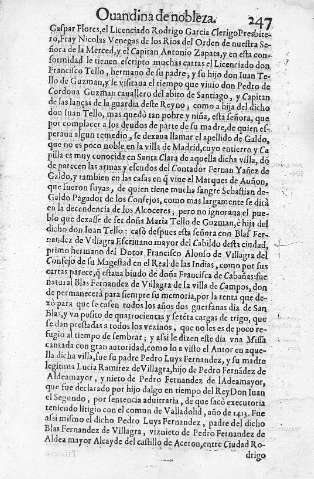 Ouandina de nobleza. 247
Gaspar Flores, el Licenciado Rodrigo Garcia Clerigo Presbite-
ro, Fray Nicolas Venegas de los Rios del Orden de nuestra Se-
ñora de la Merced, y el Capitan Antonio Zapata, y en esta con-
formidad le tienen escripto muchas cartas el Licenciado don
Francisco Tello, hermano de su padre, y su hijo don Iuan Te-
llo de Guzman, y le visitaua el tiempo que viuio don Pedro de
Cordoua Guzman cauallero del abito de Santiago, y Capitan
de las lanças de la guardia deste Reyno, como a hija del dicho
don Iuan Tello, mas quedò tan pobre y niña, esta señora, que
por complacer a los deudos de parte de su madre, de quien es-
peraua algun remedio, se dexaua llamar el apellido de Galdo,
que no es poco noble en la villa de Madrid, cuyo entierro y Ca
pilla es muy conocida en Santa Clara de aquella dicha villa, dō
de parecen las armas y escudos del Contador Fernan Yañez de
Galdo, y tambien en las casas en q̃ viue el Marques de Auñon,
que fueron suyas, de quien tiene mucha sangre Sebastian de-
Galdo Pagador de los Consejos, como mas largamente se dirà
en la decendencia de los Alcoceres, pero no ignoraua el pue-
blo que dexasse de ser doña Maria Tello de Guzman, è hija del
dicho don Iuan Tello: casò despues esta señora con Blas Fer-
nandez de Villagra Escriuano mayor del Cabildo desta ciudad,
primo hermano del Dotor Francisco Alonso de Villagra del
Consejo de su Magestad en el Real de las Indias, como por sus
cartas parece, q̃ estaua biudo de doña Francisca de Cabañas: fue
natural Blas Fernandez de Villagra de la villa de Campos, don
de permanecerà para siempre su memoria, por la renta que de-
xò para que se casen todos los años dos guerfanas dia de San
Blas, y vn posito de quatrocientas y setēta cargas de trigo, que
se dan prestadas a todos los vezinos, que no les es de poco re-
fugio al tiempo de sembrar; y assi le dizen este dia vna Missa
cantada con gran autoridad, como lo a visto el Autor en aque-
lla dicha villa, fue su padre Pedro Luys Fernandez, y su madre
legitima Lucia Ramirez de Villagra, hijo de Pedro Fernādez de
Aldeamayor, y nieto de Pedro Fernandez de lAdeamayor,
que fue declarado por hijo dalgo en tiempo del Rey Don Iuan
el Segundo, por sentencia aduitraria, de que sacò executoria
teniendo litigio con el comun de Valladolid, año de 1413. Fue
assi mismo el dicho Pedro Luys Fernandez, padre del dicho
Blas Fernandez de Villagra, viznieto de Pedro Fernandez de
Aldea mayor Alcayde del castillo de Aceron, entre Ciudad Ro-
drigo